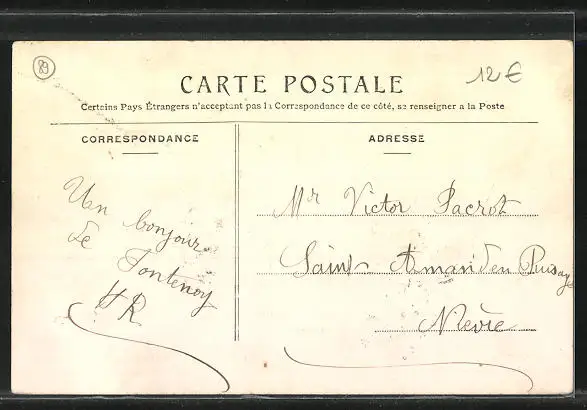 89
12 €
CARTE POSTALE
Certains Pays Étrangers n'acceptant pas la Correspondance de ce côté, se renseigner a la Poste
CORRESPONDANCE
Un bonjour
de Fontenoy
HR
ADRESSE
Mr Victor Pacrot
Saint Amand en Puisaye
Nièvre